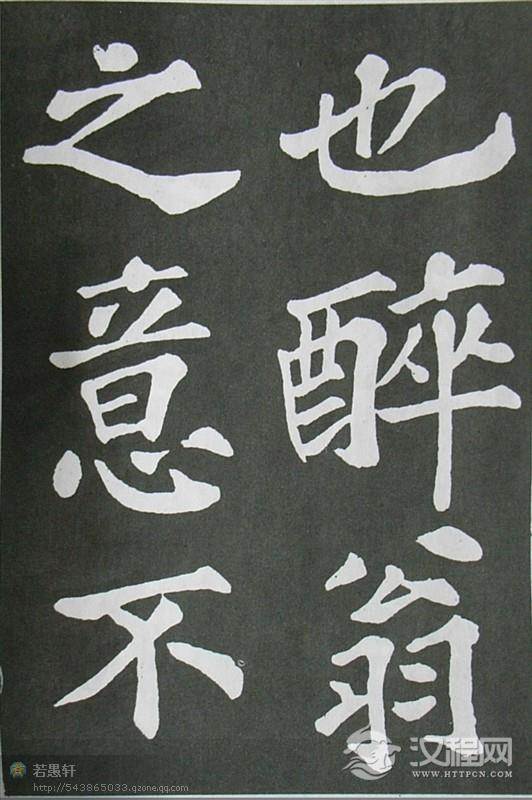 也醉翁
之意不
若愚轩
http://543865033.qzone.qq.com
汉程网
WWW.HTTPCN.COM